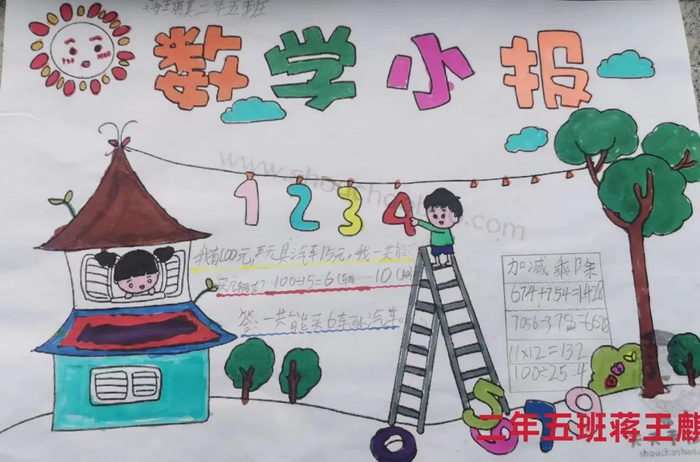 二年五班
数学小报
www.shouchaobao.com
1 2 3 4
我有100元,玩具汽车15元,我一共能
买 100÷15=6(辆)……10(元)
答:一共能买6车玩汽车。
加减乘除
674+754=1428
7056-378=6678
11×12=132
100÷25=4
二年五班蒋王麒